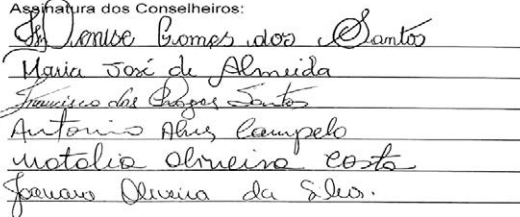 Assinatura dos Conselheiros:
Denise Gomes dos Santos
Maria José de Almeida
Francisco das Chagas Santos
Antonio Alves Campelo
Natalia Oliveira Costa
Oliveira da Silva.